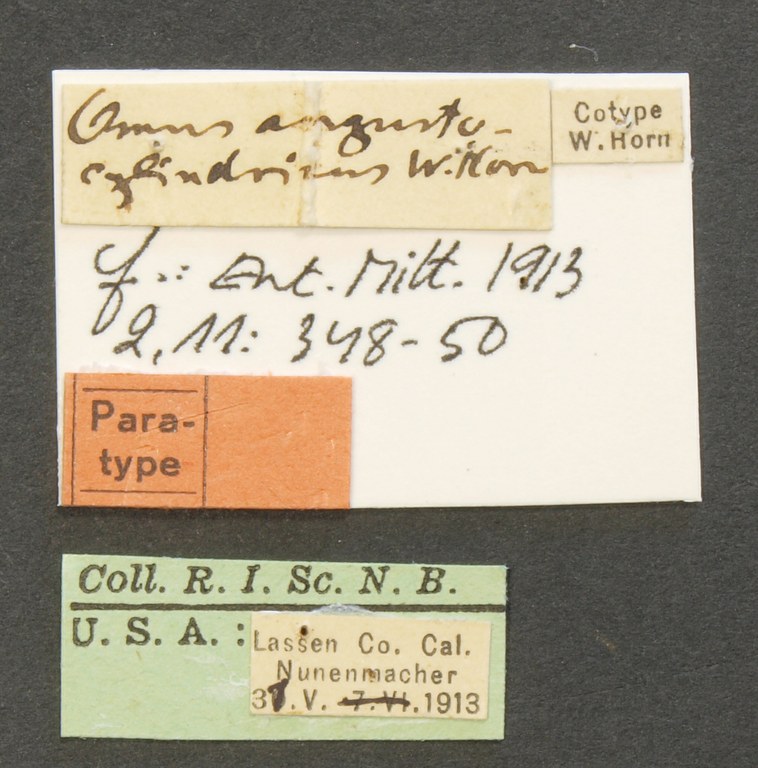 Omus angusto-
cylindricus W. Horn
Cotype
W. Horn
cf.: Ent. Mitt. 1913
2, 11: 348-50
Para-
type
Coll. R. I. Sc. N. B.
U. S. A. :
Lassen Co. Cal.
Nunenmacher
31.V. 7.VI.1913